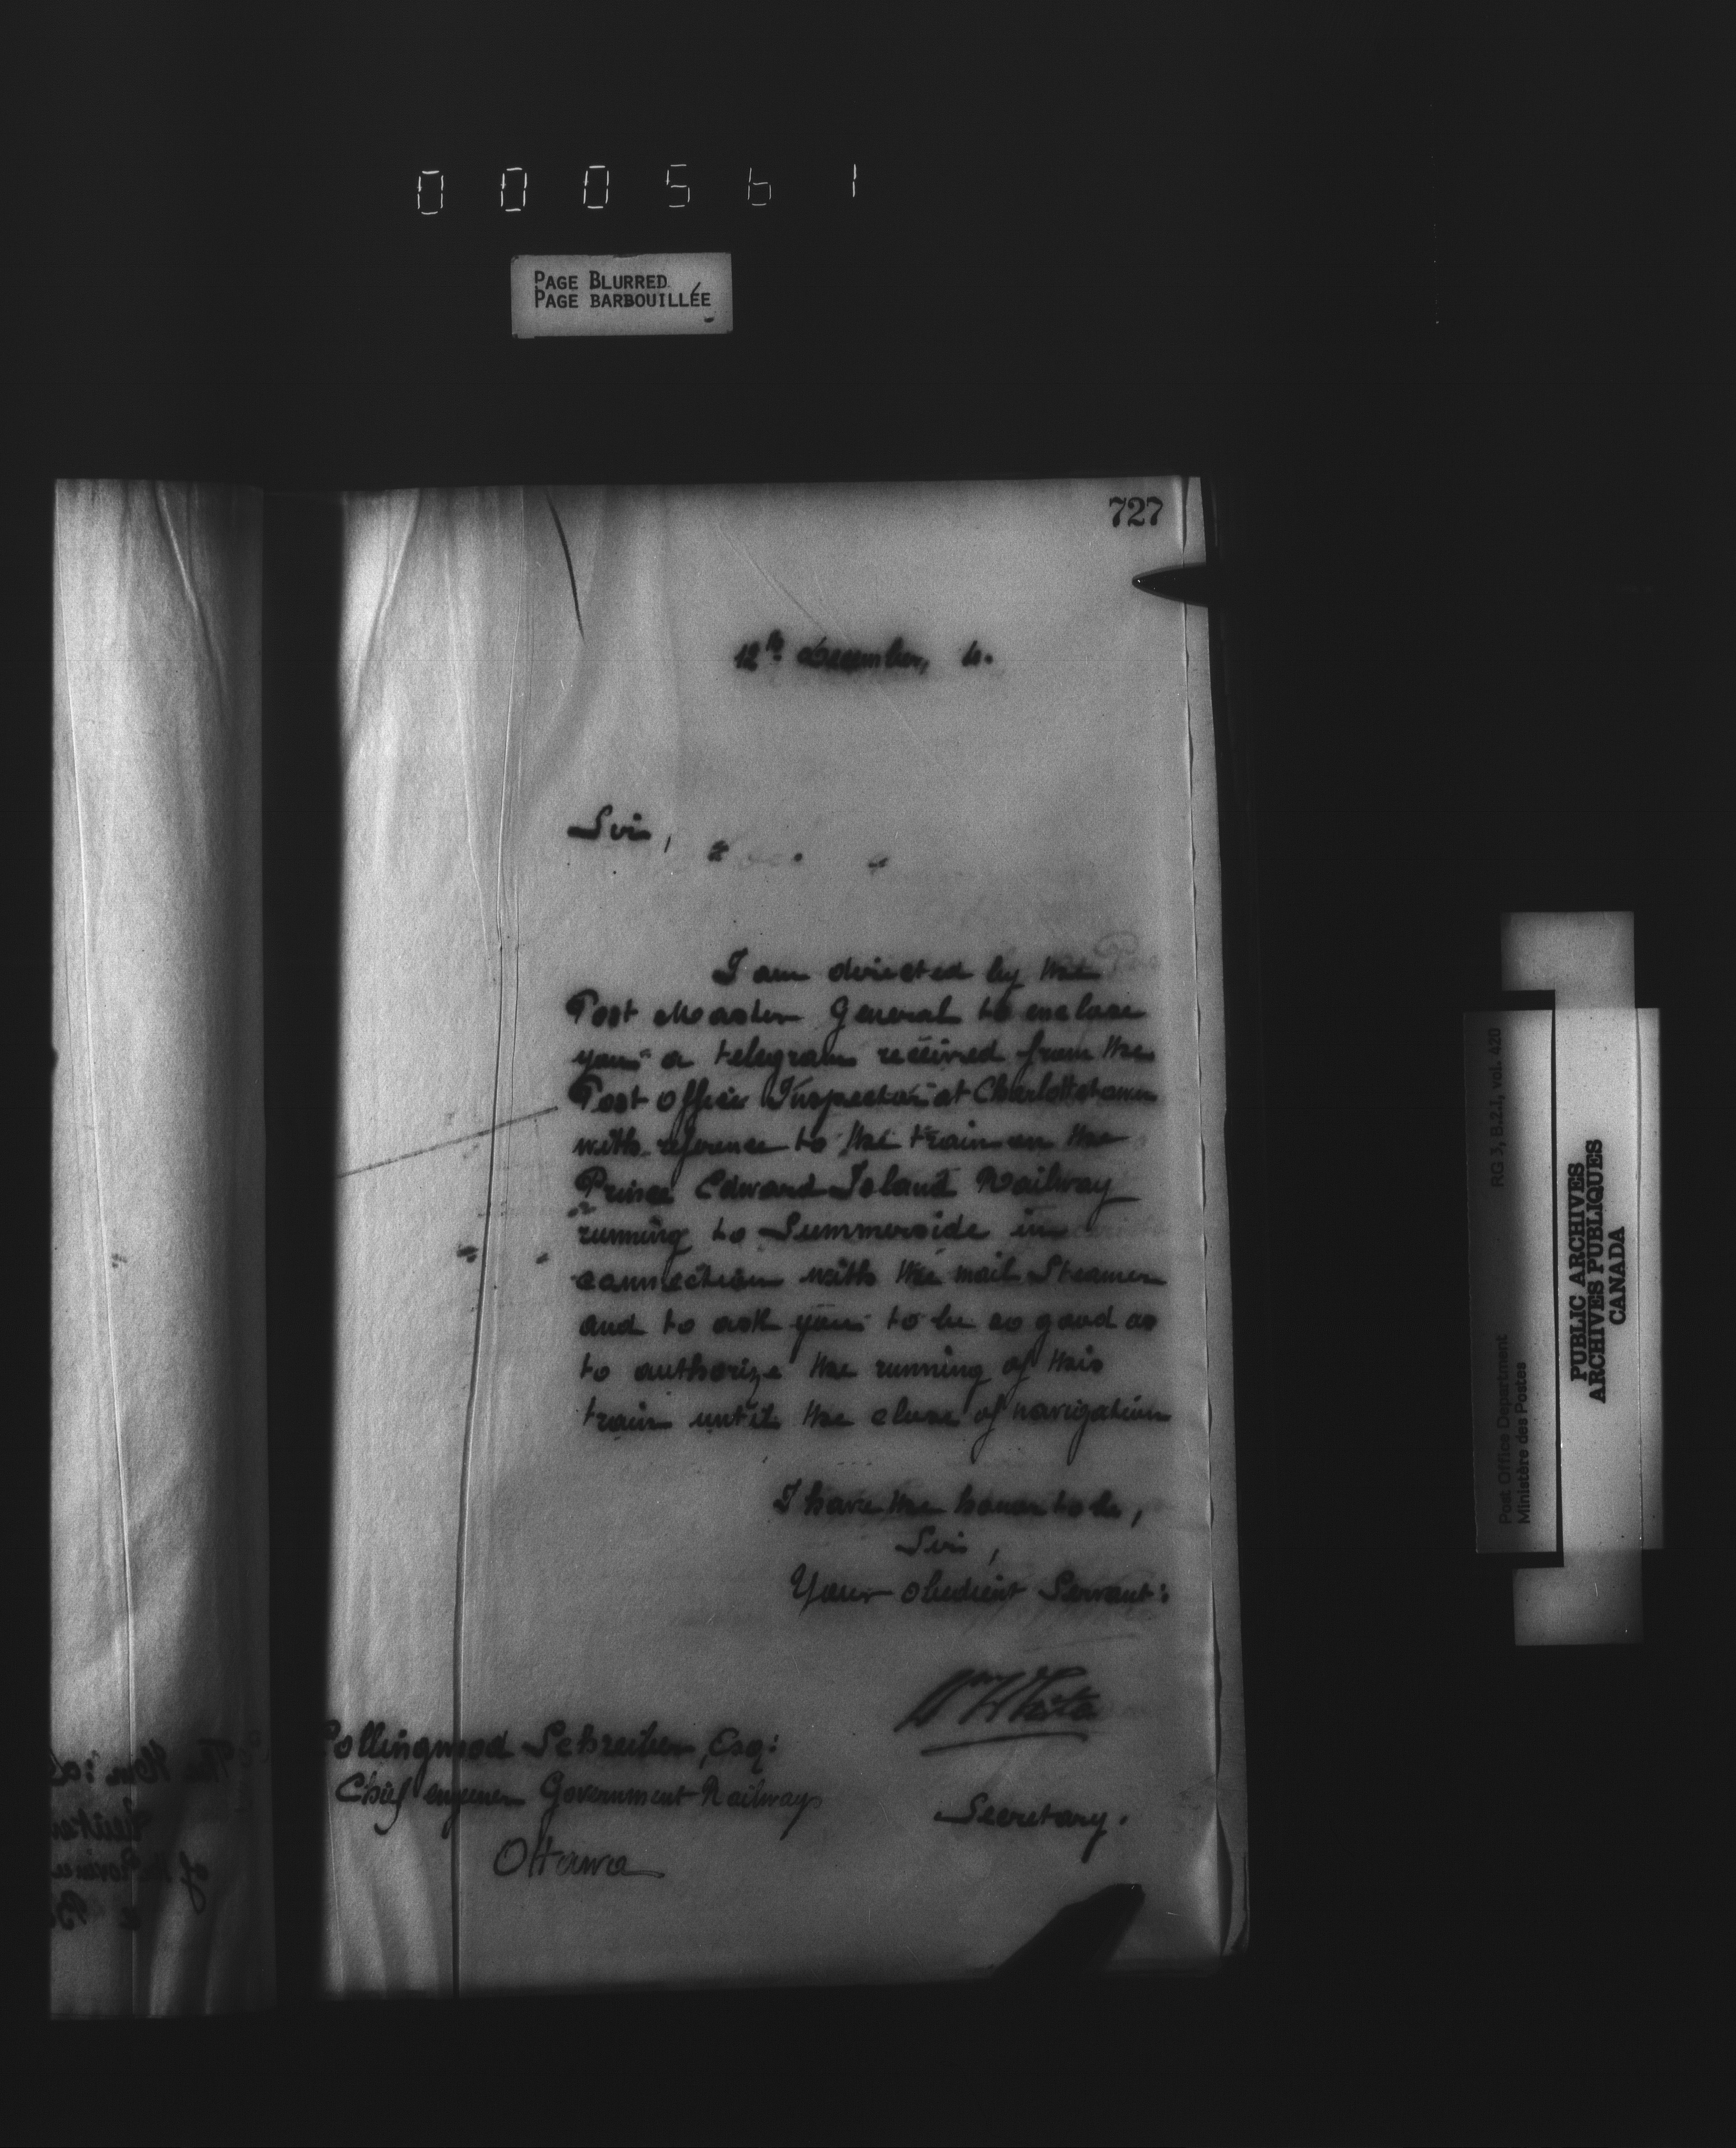 000561
PAGE BLURRED
PAGE BARBOUILLÉE
727
12th December, 4.
Sir,
I am directed by the
Post Master General to enclose
you a telegram received from the
Post Office Inspector at Charlottetown
with reference to the train on the
Prince Edward Island Railway
running to Summerside in
connection with the mail Steamer
and to ask you to be so good as
to authorize the running of this
train until the close of navigation
I have the honor to be,
Sir,
Your obedient Servant:
Wm White
Secretary.
Collingwood Schreiber, Esq:
Chief engineer Government Railways
Ottawa
The Hon:
of the
RG 3, B.2.1, vol. 420
Post Office Department
Ministère des Postes
PUBLIC ARCHIVES
ARCHIVES PUBLIQUES
CANADA